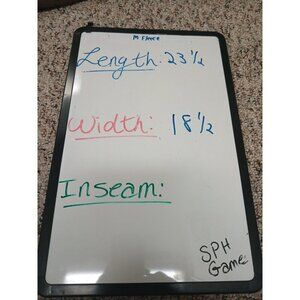 Length: 23 1/2
Width: 18 1/2
Inseam:
SPH
Game